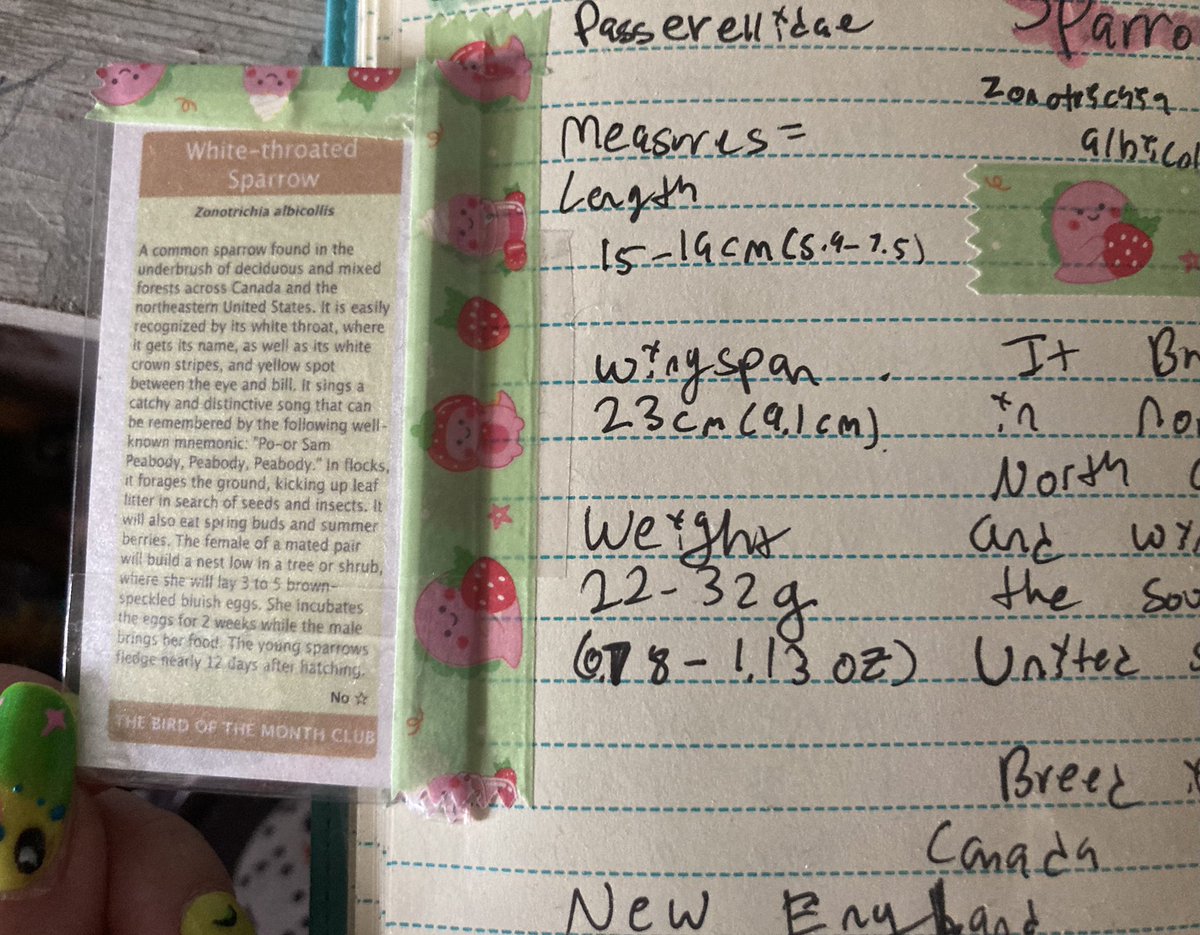 White-throated
Sparrow
Zonotrichia albicollis
A common sparrow found in the
underbrush of deciduous and mixed
forests across Canada and the
northeastern United States. It is easily
recognized by its white throat, where
it gets its name, as well as its white
crown stripes, and yellow spot
between the eye and bill. It sings a
catchy and distinctive song that can
be remembered by the following well-
known mnemonic: "Po-or Sam
Peabody, Peabody, Peabody." In flocks,
it forages the ground, kicking up leaf
litter in search of seeds and insects. It
will also eat spring buds and summer
berries. The female of a mated pair
will build a nest low in a tree or shrub,
where she will lay 3 to 5 brown-
speckled bluish eggs. She incubates
the eggs for 2 weeks while the male
brings her food. The young sparrows
fledge nearly 12 days after hatching.
No ☆
THE BIRD OF THE MONTH CLUB
Passerellidae
Sparro
Zonotrichia
albicol
Measures =
Length
15-19cm(5.9-7.5)
wingspan
23cm(9.1cm)
Weight
22-32g
(0.78-1.13 oz)
It Br
in nor
North
and wi
the sou
United S
Breed
Canada
New England